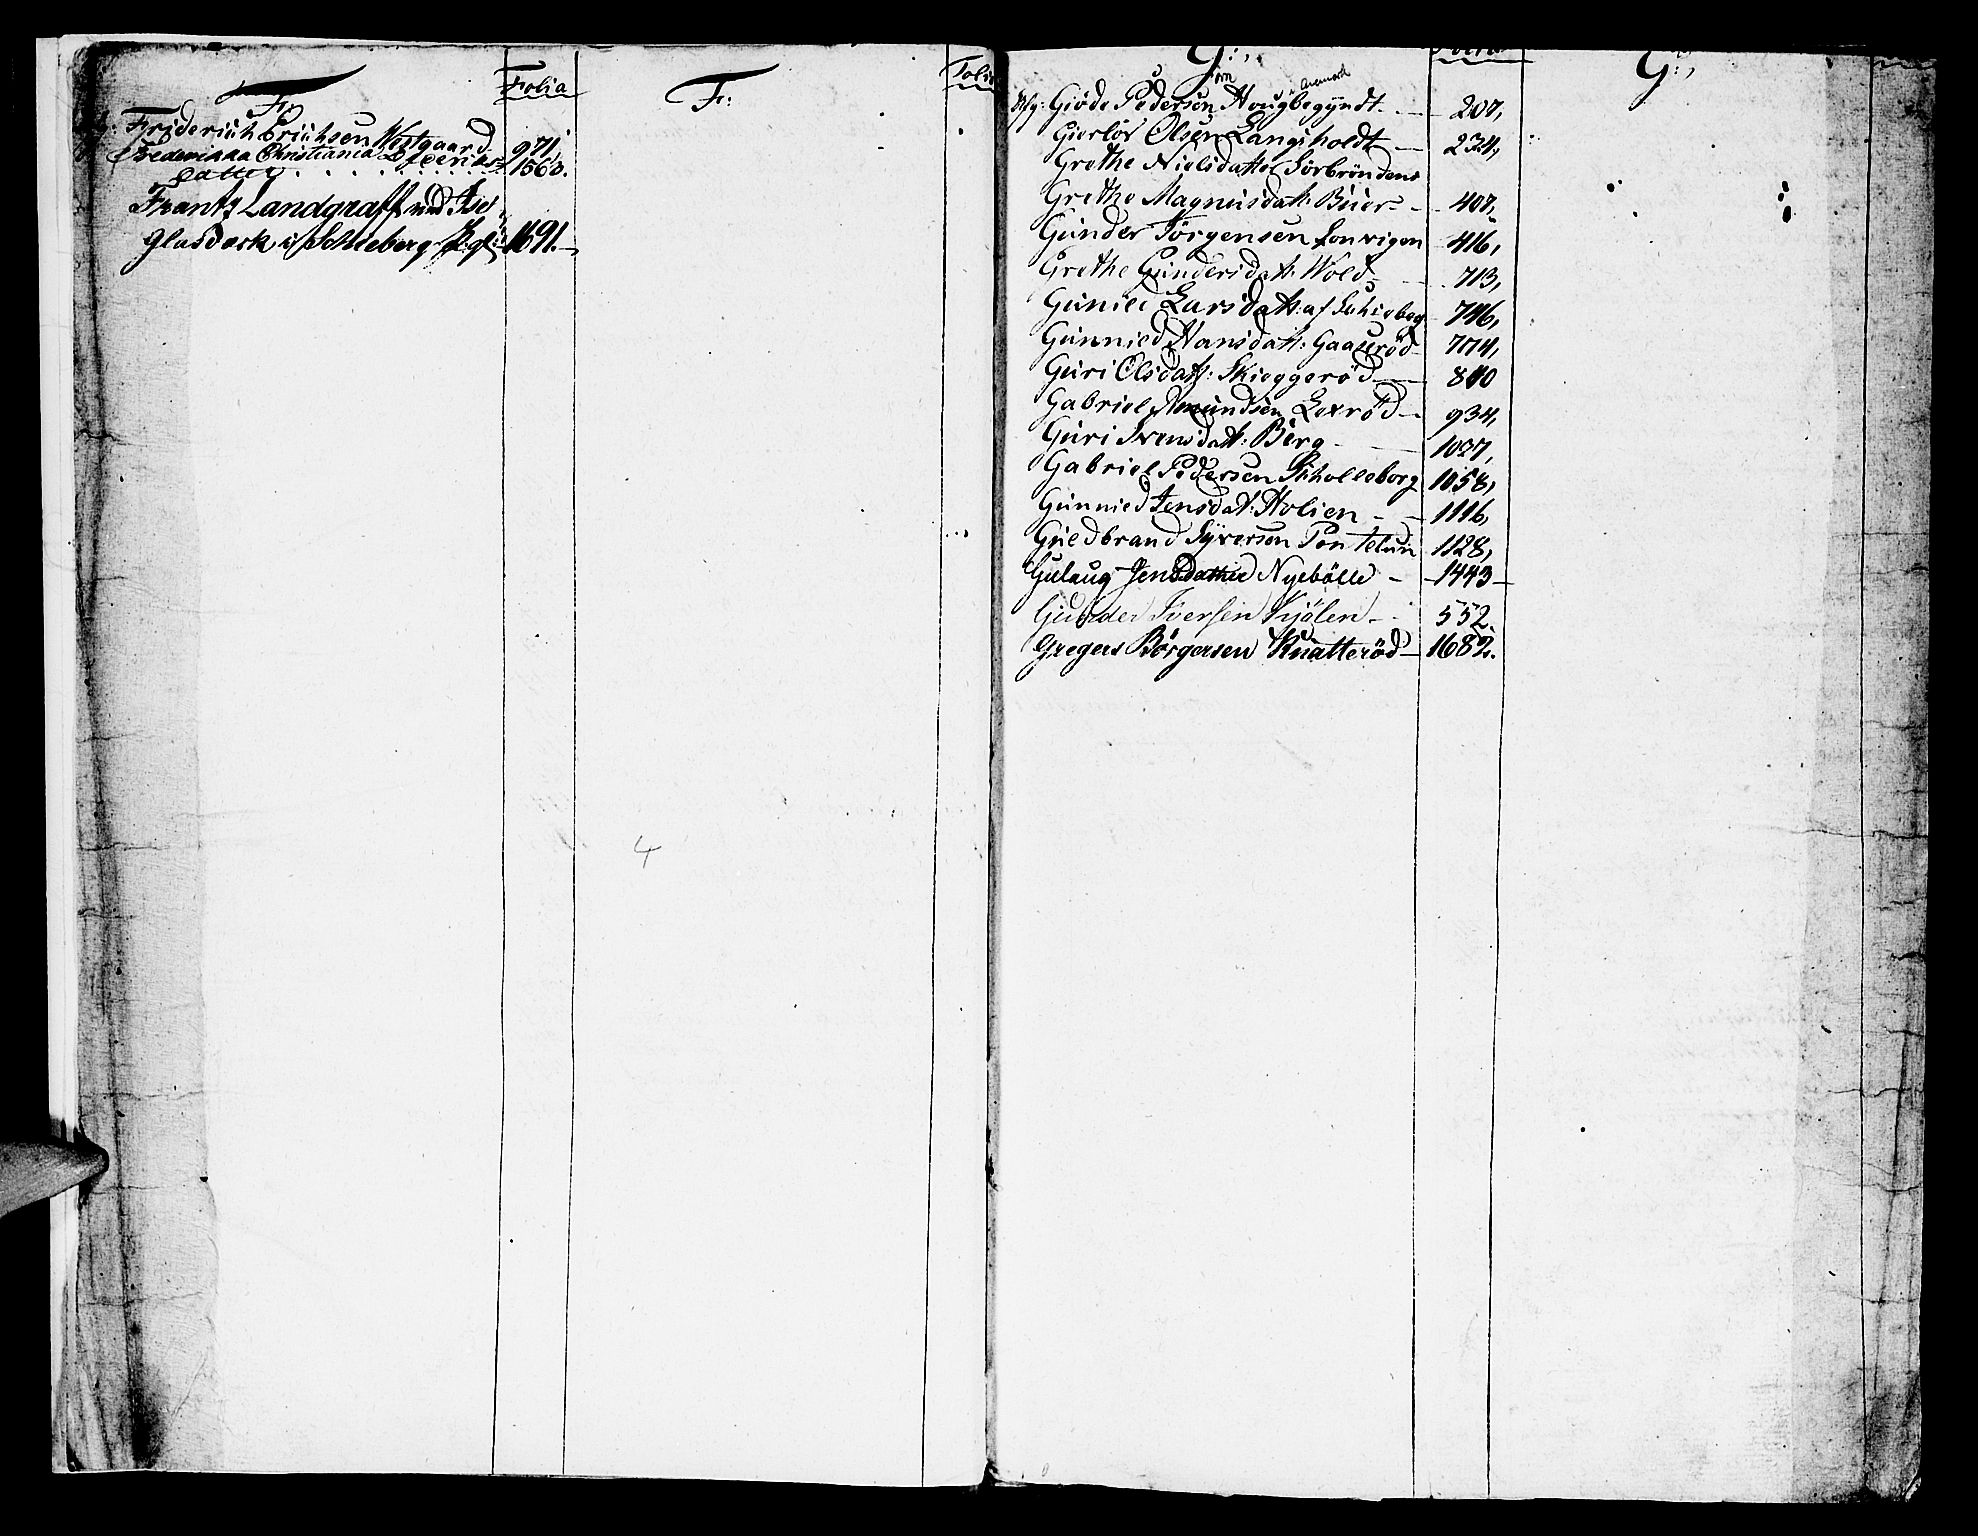 F:
Folia
Friderich Erichsen Westgaard 971,
Frederikka Christiania Diderichs-
datter . . . . . . . . 1563.
Frantz Landgraff ved
Glasværk 1691.
F:
Folia
4
G:,
Folia
Giøde Pedersen Hougbegyndt. 207,
Gierlov Olsen Langiholdt 234,
Grethe Nielsdatter Sørbrönden
Grethe Magnusdatt: Buer 407,
Gunder Jörgensen 416,
Grethe Gundersdatt: Wold 713,
Gunild Larsdatt: af 746,
Gunnild Hansdatt: Gaaseröd 774,
Guri Olsdatt: Skieggeröd 840
Gabriel Amundsen Lexröd 934,
Guri Svensdatt: Berg 1027,
Gabriel Pedersen Scholleborg 1058,
Gunnild Jensdat: Holien 1116,
Guldbrand Syversen 1128,
Gulaug Jensdatter Nyebölle - 1443
Gunder Iversen Kjölen - 552.
Gregers Börgersen Knatteröd 1682.
G:,